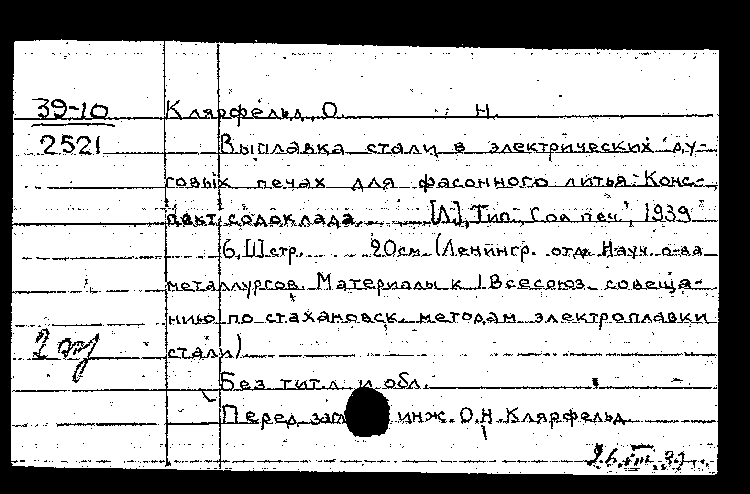 39-10 Клярфельд, О. Н.
2521 Выплавка стали в электрических ду-
говых печах для фасонного литья. Конс-
пект содоклада. [Л.], Тип. "Соц. печ.", 1939
6, [1] стр. 20 см. (Ленингр. отд. Науч. о-ва
металлургов. Материалы к I Всесоюз. совеща-
нию по стахановск. методам электроплавки
2 экз стали)
Без тит. л. и обл.
Перед загл. инж. О. Н. Клярфельд.
26.VIII.39